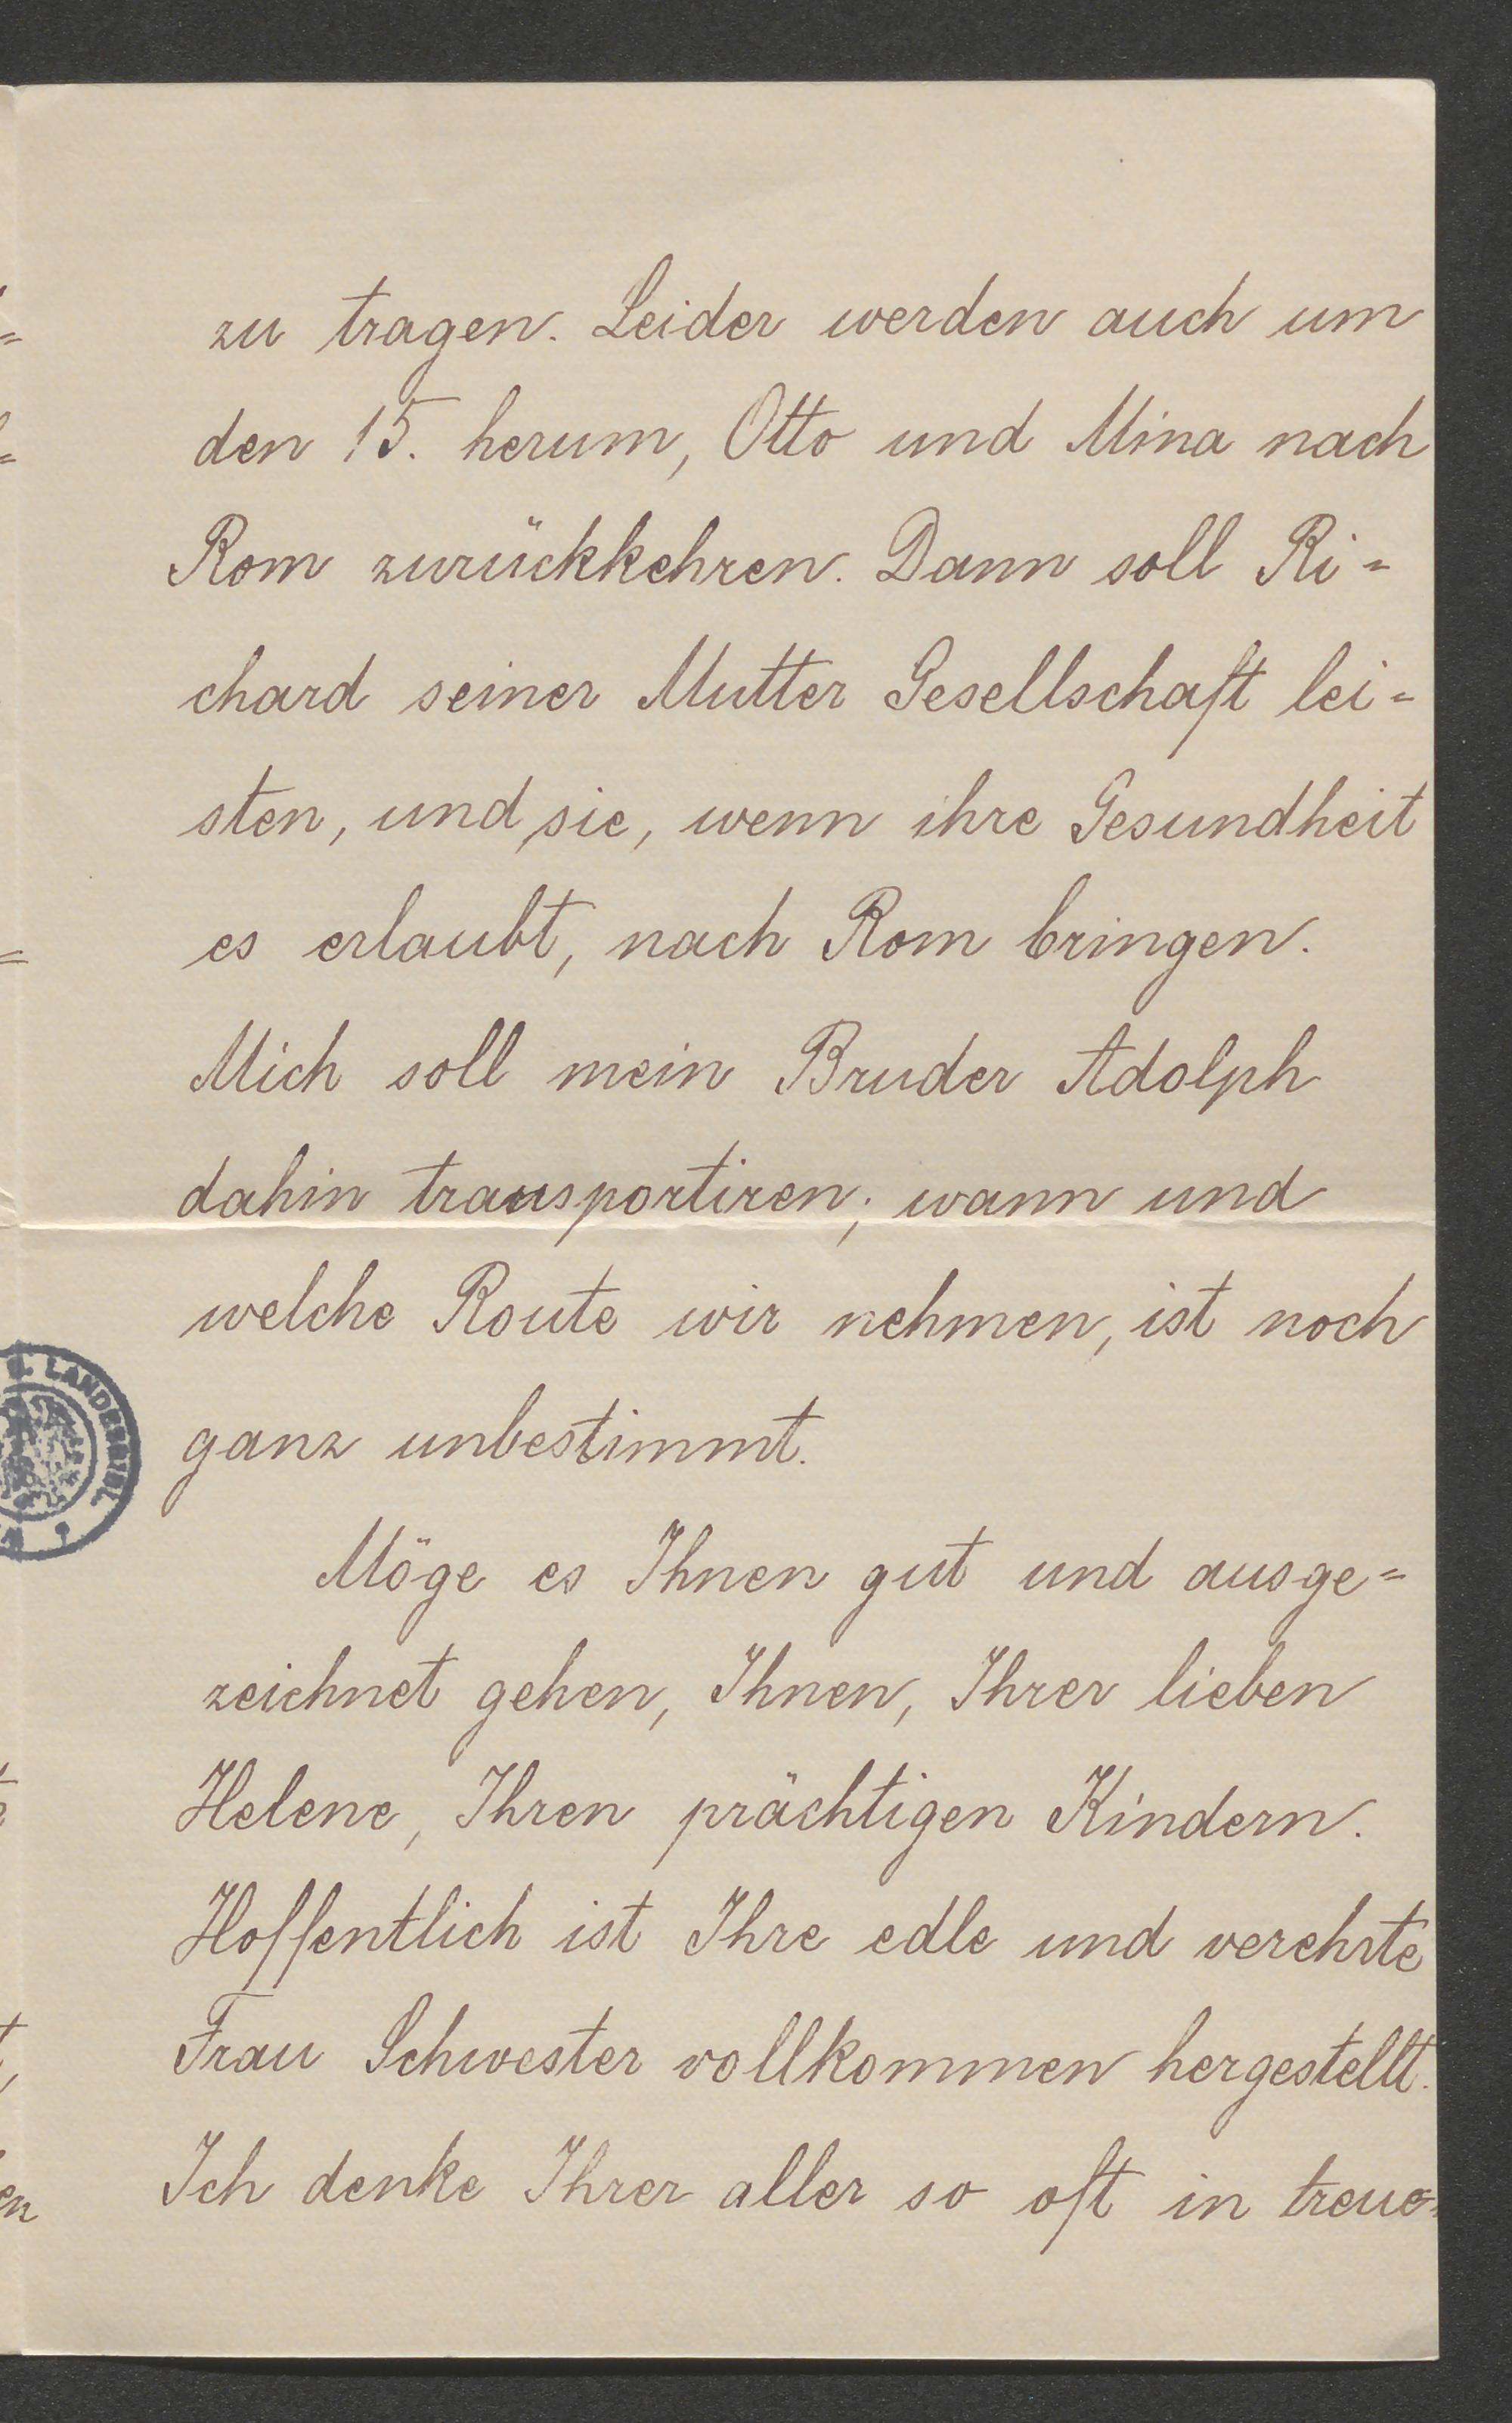 zu tragen. Leider werden auch um
den 15. herum, Otto und Mina nach
Rom zurückkehren. Dann soll Ri=
chard seiner Mutter Gesellschaft lei=
sten, und sie, wenn ihre Gesundheit
es erlaubt, nach Rom bringen.
Mich soll mein Bruder Adolph
dahin transportiren; wann und
welche Route wir nehmen, ist noch
ganz unbestimmt.
Möge es Ihnen gut und ausge=
zeichnet gehen, Ihnen, Ihrer lieben
Helene, Ihren prächtigen Kindern.
Hoffentlich ist Ihre edle und verehrte
Frau Schwester vollkommen hergestellt.
Ich denke Ihrer aller so oft in treue=